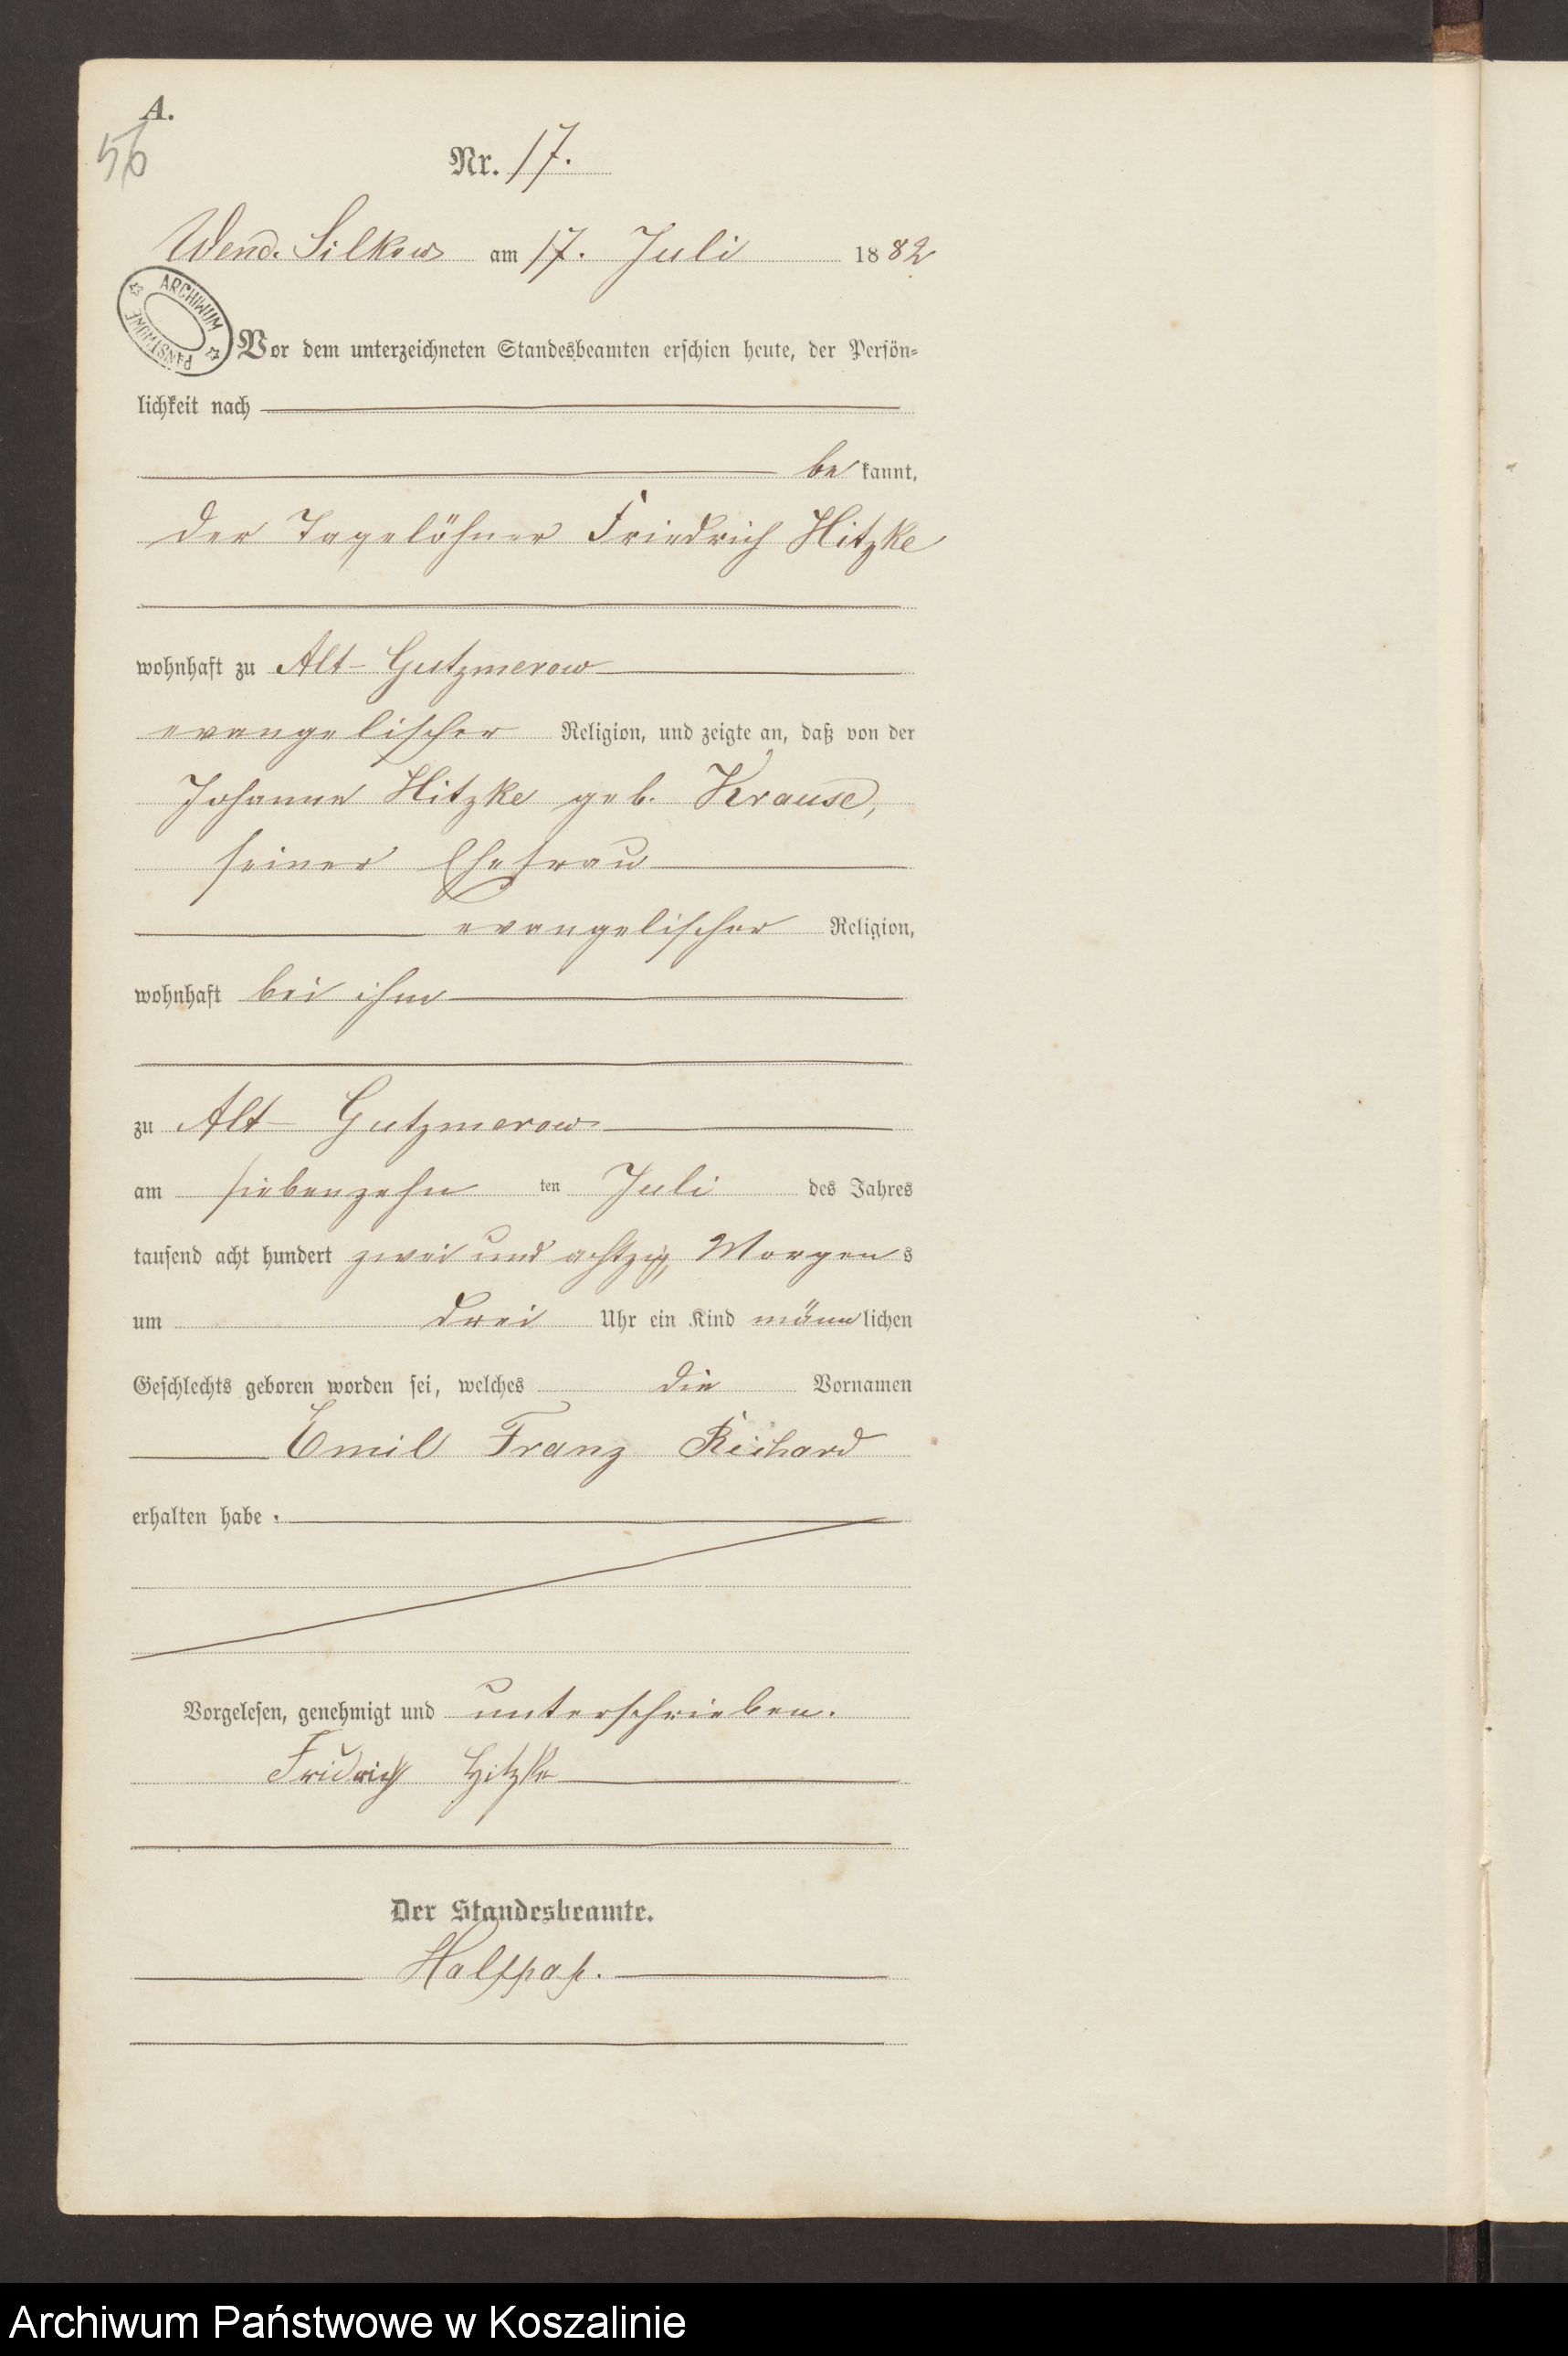 A.
56
Nr. 17.
Wend. Silkow am 17. Juli 1882
ARCHIWUM PAŃSTWOWE
Vor dem unterzeichneten Standesbeamten erschien heute, der Persön-
lichkeit nach
bekannt,
der Tagelöhner Friedrich Hitzke
wohnhaft zu Alt-Gutzmerow
evangelischer Religion, und zeigte an, daß von der
Johanne Hitzke geb. Krause,
seiner Ehefrau
evangelischer Religion,
wohnhaft bei ihm
zu Alt-Gutzmerow
am siebenzehn ten Juli des Jahres
tausend acht hundert zwei und achtzig, Morgens
um drei Uhr ein Kind männlichen
Geschlechts geboren worden sei, welches die Vornamen
Emil Franz Richard
erhalten habe.
Vorgelesen, genehmigt und unterschrieben.
Fridrich Hitzke
Der Standesbeamte.
Halfpap.
Archiwum Państwowe w Koszalinie